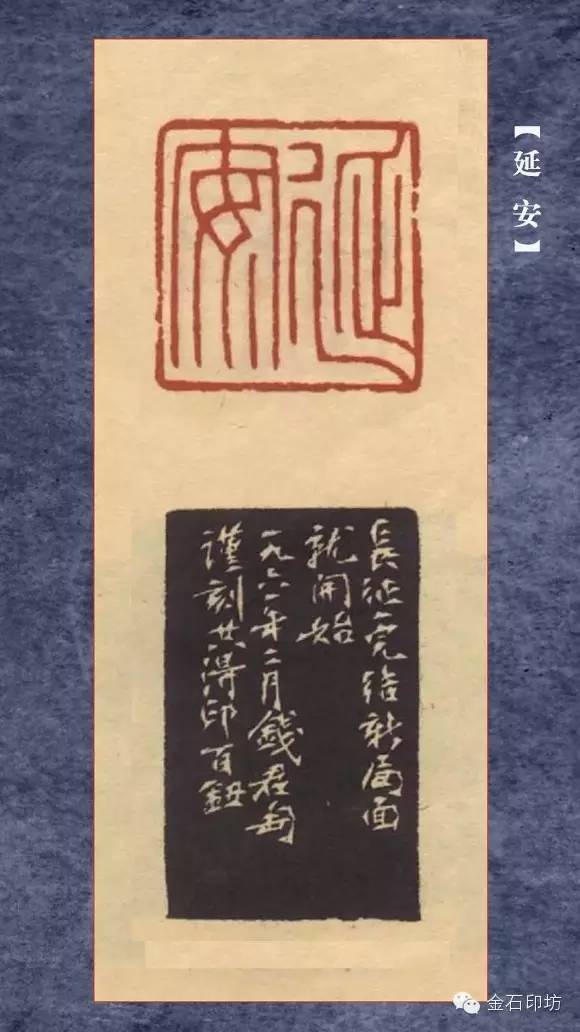 【延安】
延安
長征一完結新局面
就開始
一九六一年二月錢君匋
謹刻共得印百鈕
金石印坊